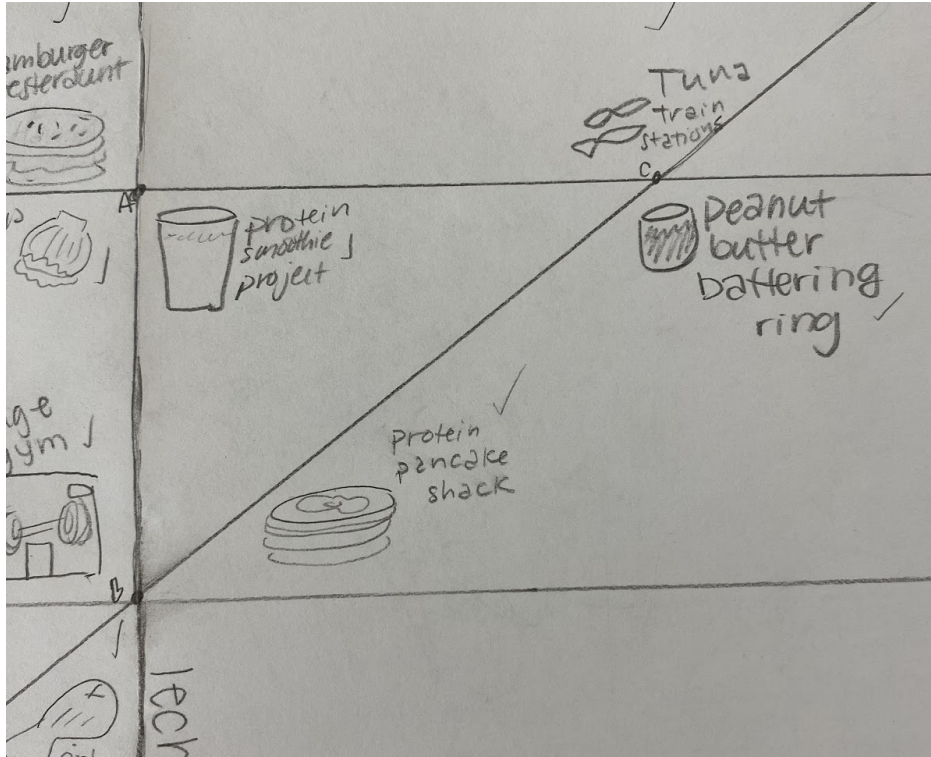 amburger
esteraunt
Tuna
train
stations
A
C
protein
smoothie
project
peanut
butter
battering
ring
ge
gym
protein
pancake
shack
B
Tech